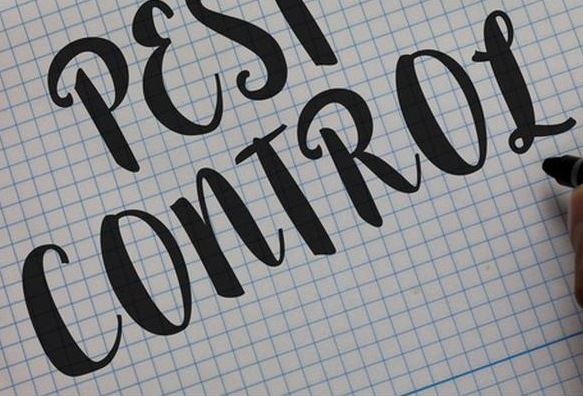 PEST
CONTROL